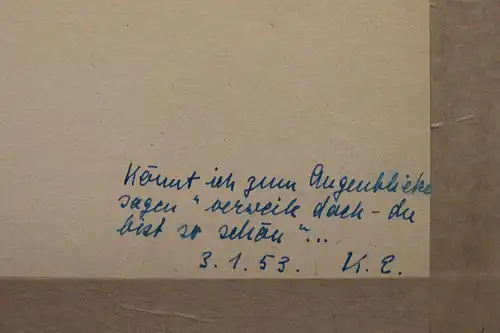 Könnt ich zum Augenblicke
sagen " verweile doch - du
bist so schön "...
3.1.53. K.E.